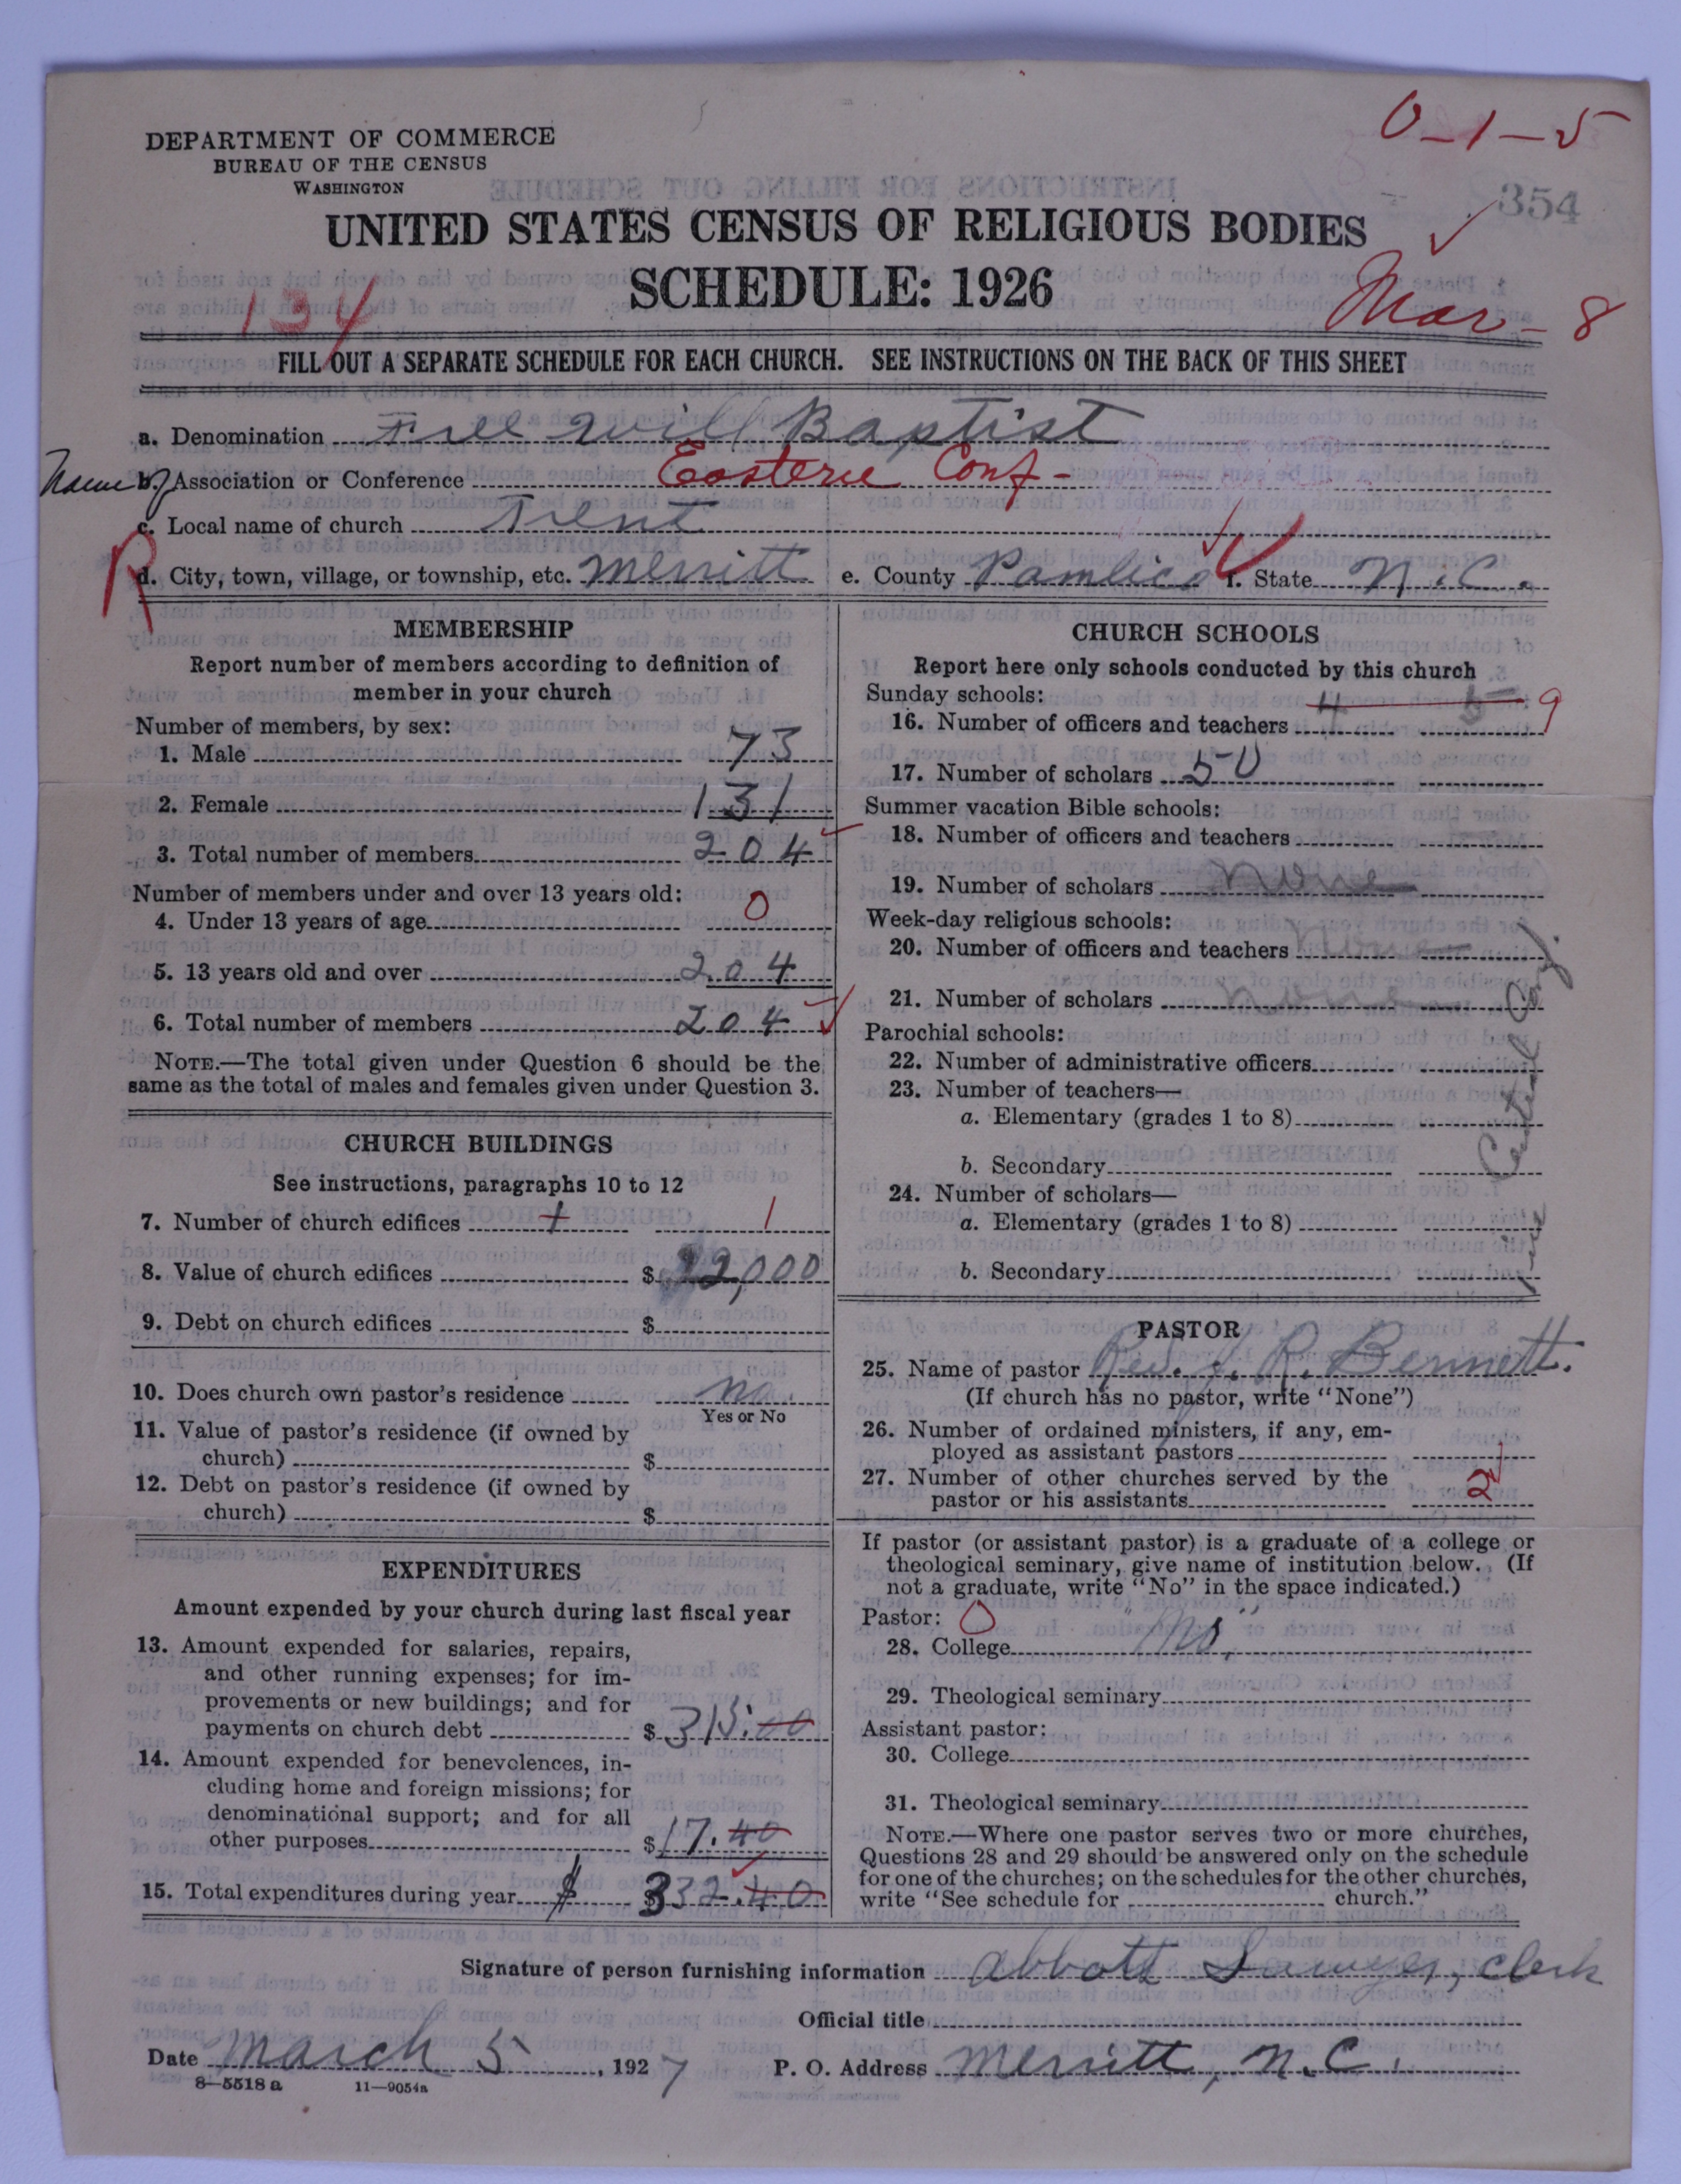 0-1-5
DEPARTMENT OF COMMERCE
BUREAU OF THE CENSUS
WASHINGTON
354
UNITED STATES CENSUS OF RELIGIOUS BODIES
SCHEDULE: 1926
134
Mar-8
FILL OUT A SEPARATE SCHEDULE FOR EACH CHURCH. SEE INSTRUCTIONS ON THE BACK OF THIS SHEET
a. Denomination Free Will Baptist
Name of b. Association or Conference Eastern Conf-
c. Local name of church Trent
R
d. City, town, village, or township, etc. Merritt e. County Pamlico f. State N.C.
MEMBERSHIP
Report number of members according to definition of
member in your church
Number of members, by sex:
1. Male 73
2. Female 131
3. Total number of members 204
Number of members under and over 13 years old:
4. Under 13 years of age 0
5. 13 years old and over 204
6. Total number of members 204
NOTE.—The total given under Question 6 should be the
same as the total of males and females given under Question 3.
CHURCH BUILDINGS
See instructions, paragraphs 10 to 12
7. Number of church edifices 1 1
8. Value of church edifices $ 22,000
9. Debt on church edifices $
10. Does church own pastor's residence no.
Yes or No
11. Value of pastor's residence (if owned by
church) $
12. Debt on pastor's residence (if owned by
church) $
EXPENDITURES
Amount expended by your church during last fiscal year
13. Amount expended for salaries, repairs,
and other running expenses; for im-
provements or new buildings; and for
payments on church debt $ 315.00
14. Amount expended for benevolences, in-
cluding home and foreign missions; for
denominational support; and for all
other purposes $ 17.40
15. Total expenditures during year $ 332.40
CHURCH SCHOOLS
Report here only schools conducted by this church
Sunday schools:
16. Number of officers and teachers 4 5 9
17. Number of scholars 50
Summer vacation Bible schools:
18. Number of officers and teachers
19. Number of scholars None
Week-day religious schools:
20. Number of officers and teachers None
21. Number of scholars None
Parochial schools:
22. Number of administrative officers
23. Number of teachers—
a. Elementary (grades 1 to 8)
b. Secondary
24. Number of scholars—
a. Elementary (grades 1 to 8)
b. Secondary
PASTOR
25. Name of pastor Rev. J. R. Bennett.
(If church has no pastor, write "None")
26. Number of ordained ministers, if any, em-
ployed as assistant pastors
27. Number of other churches served by the
pastor or his assistants 2
If pastor (or assistant pastor) is a graduate of a college or
theological seminary, give name of institution below. (If
not a graduate, write "No" in the space indicated.)
Pastor: 0
28. College "No"
29. Theological seminary
Assistant pastor:
30. College
31. Theological seminary
NOTE.—Where one pastor serves two or more churches,
Questions 28 and 29 should be answered only on the schedule
for one of the churches; on the schedules for the other churches,
write "See schedule for church."
Signature of person furnishing information Abbott Sawyer, clerk
Official title
Date March 5, 1927 P. O. Address Merritt, N.C.
8-5518 a 11-9054a